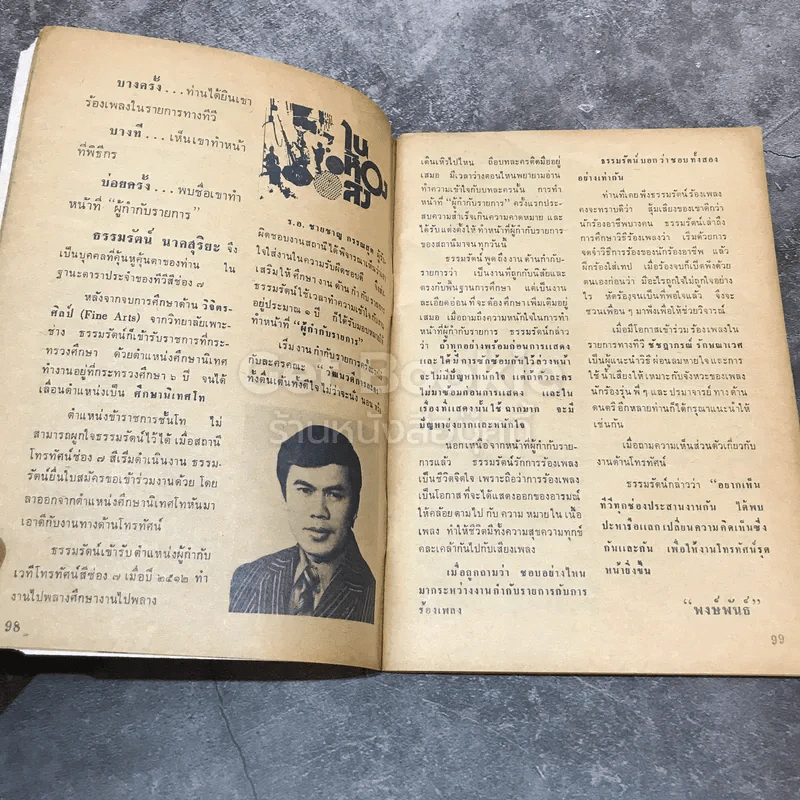 บางครั้ง...ท่านได้ยินเขา
ร้องเพลงในรายการทางทีวี
บางที...เห็นเขาทำหน้า
ที่พิธีกร
บ่อยครั้ง...พบชื่อเขาทำ
หน้าที่ “ผู้กำกับรายการ”
ธรรมรัตน์ นาคสุริยะ จึง
เป็นบุคคลที่คุ้นหูคุ้นตาของท่าน ใน
ฐานะดาราประจำของทีวีสีช่อง ๗
หลังจากจบการศึกษาด้าน วิจิตร-
ศิลป์ (Fine Arts) จากวิทยาลัยเพาะ-
ช่าง ธรรมรัตน์ก็เข้ารับราชการที่กระ-
ทรวงศึกษา ด้วยตำแหน่งศึกษานิเทศ
ทำงานอยู่ที่กระทรวงศึกษา ๖ ปี จนได้
เลื่อนตำแหน่งเป็น ศึกษานิเทศโท
ตำแหน่งข้าราชการชั้นโท ไม่
สามารถผูกใจธรรมรัตน์ไว้ได้ เมื่อสถานี
โทรทัศน์ช่อง ๗ สีเริ่มดำเนินงาน ธรรม-
รัตน์ยื่นใบสมัครขอเข้าร่วมงานด้วย โดย
ลาออกจากตำแหน่งศึกษานิเทศโทหันมา
เอาดีกับงานทางด้านโทรทัศน์
ธรรมรัตน์เข้ารับตำแหน่งผู้กำกับ
เวทีโทรทัศน์สีช่อง ๗ เมื่อปี ๒๕๑๒ ทำ
งานไปพลางศึกษางานไปพลาง
98
ใน
ห้อง
ส่ง
ร.อ. ชายชาญ
ผิดชอบงานสถานีได้พิจารณาเห็น
ใจใส่งานในความรับผิดชอบดี
เสริมให้ศึกษางานด้านกำกับรายการ
ธรรมรัตน์ใช้เวลาทำความเข้าใจกับงาน
อยู่ประมาณ ๑ ปี ก็ได้รับมอบหมาย
ทำหน้าที่ “ผู้กำกับรายการ”
เริ่มงานกำกับรายการครั้งแรก
กับละครคณะ
ทั้งตื่นเต้นทั้งดีใจ ไม่ว่าจะนั่ง นอน
เดินเหินไปไหน ถือบทละครติดมืออยู่
เสมอ มีเวลาว่างตอนไหนพยายามอ่าน
ทำความเข้าใจกับบทละครนั้น การทำ
หน้าที่ “ผู้กำกับรายการ” ครั้งแรกประ-
สบความสำเร็จเกินความคาดหมาย และ
ได้รับแต่งตั้งให้ทำหน้าที่ผู้กำกับรายการ
ของสถานีมาจนทุกวันนี้
ธรรมรัตน์พูดถึงงานด้านกำกับ-
รายการว่า เป็นงานที่ถูกกับนิสัยและ
ตรงกับพื้นฐานการศึกษา แต่เป็นงาน
ละเอียดอ่อนที่จะต้องศึกษาเพิ่มเติมอยู่
เสมอ เมื่อถามถึงความหนักใจในการทำ
หน้าที่ผู้กำกับรายการ ธรรมรัตน์กล่าว
ว่า ถ้าทุกอย่างพร้อมก่อนการแสดง
และได้มีการซักซ้อมกันไว้ล่วงหน้า
จะไม่มีปัญหาหนักใจ แต่ถ้าตัวละคร
ไม่มาซ้อมก่อนการแสดง และใน
เรื่องที่แสดงนั้นใช้ฉากมาก จะมี
ปัญหายุ่งยากและหนักใจ
นอกเหนือจากหน้าที่ผู้กำกับราย-
การแล้ว ธรรมรัตน์รักการร้องเพลง
เป็นชีวิตจิตใจ เพราะถือว่าการร้องเพลง
เป็นโอกาสที่จะได้แสดงออกของอารมณ์
ให้คล้อยตามไปกับความหมายในเนื้อ
เพลง ทำให้ชีวิตมีทั้งความสุขความทุกข์
คละเคล้ากันไปกับเสียงเพลง
เมื่อถูกถามว่า ชอบอย่างไหน
มากระหว่างงานกำกับรายการกับการ
ร้องเพลง
ธรรมรัตน์บอกว่าชอบทั้งสอง
อย่างเท่ากัน
ท่านที่เคยฟังธรรมรัตน์ร้องเพลง
คงจะทราบดีว่า สุ้มเสียงของเขาดีกว่า
นักร้องอาชีพบางคน ธรรมรัตน์เล่าถึง
การศึกษาวิธีร้องเพลงว่า เริ่มด้วยการ
จดจำวิธีการร้องของนักร้องอาชีพ แล้ว
ฝึกร้องใส่เทป เมื่อร้องจบก็เปิดฟังด้วย
ตนเองก่อนว่า มีอะไรถูกใจไม่ถูกใจอย่าง
ไร หัดร้องจนเป็นที่พอใจแล้ว จึงจะ
ชวนเพื่อน ๆ มาฟังเพื่อให้ช่วยวิจารณ์
เมื่อมีโอกาสเข้าร่วมร้องเพลงใน
รายการทางทีวี ชัชฎาภรณ์ รักษณาเวศ
เป็นผู้แนะนำวิธีผ่อนลมหายใจและการ
ใช้น้ำเสียงให้เหมาะกับจังหวะของเพลง
นักร้องรุ่นพี่ ๆ และปรมาจารย์ทางด้าน
ดนตรีอีกหลายท่านก็ได้กรุณาแนะนำให้
เช่นกัน
เมื่อถามความเห็นส่วนตัวเกี่ยวกับ
งานด้านโทรทัศน์
ธรรมรัตน์กล่าวว่า “อยากเห็น
ทีวีทุกช่องประสานงานกัน ได้พบ
ปะหารือแลกเปลี่ยนความคิดเห็นซึ่ง
กันและกัน เพื่อให้งานโทรทัศน์รุด
หน้ายิ่งขึ้น
“พงษ์พันธ์”
99